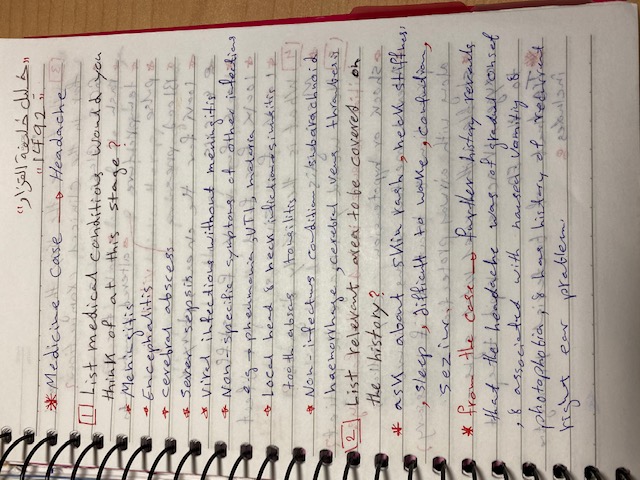 "خلك خليفة النزار"
"1492"
* Medicine case → Headache
1 List medical conditions would you
think of at this stage?
* Meningitis
* Encephalitis
* cerebral abscess
* Sever sepsis
* Viral infections without meningitis
* Non-specific symptoms of other infections
e.g → pneumonia, UTI, malaria
* Local head & neck infections, sinusitis,
tooth abscess, tonsilitis
* Non-infectous condition: subarachnoid
haemorrhage, cerebral vens thrombosis
2 List relevant area to be covered on
the history?
* ask about skin rash, neck stiffness
, sleep, difficult to wake, confusion,
Seziur
* From the case → further history reveals
that the headache was of gradual onset
, & associated with nausea, vomitig &
photophobia, & has history of recurrent
right ear problem.